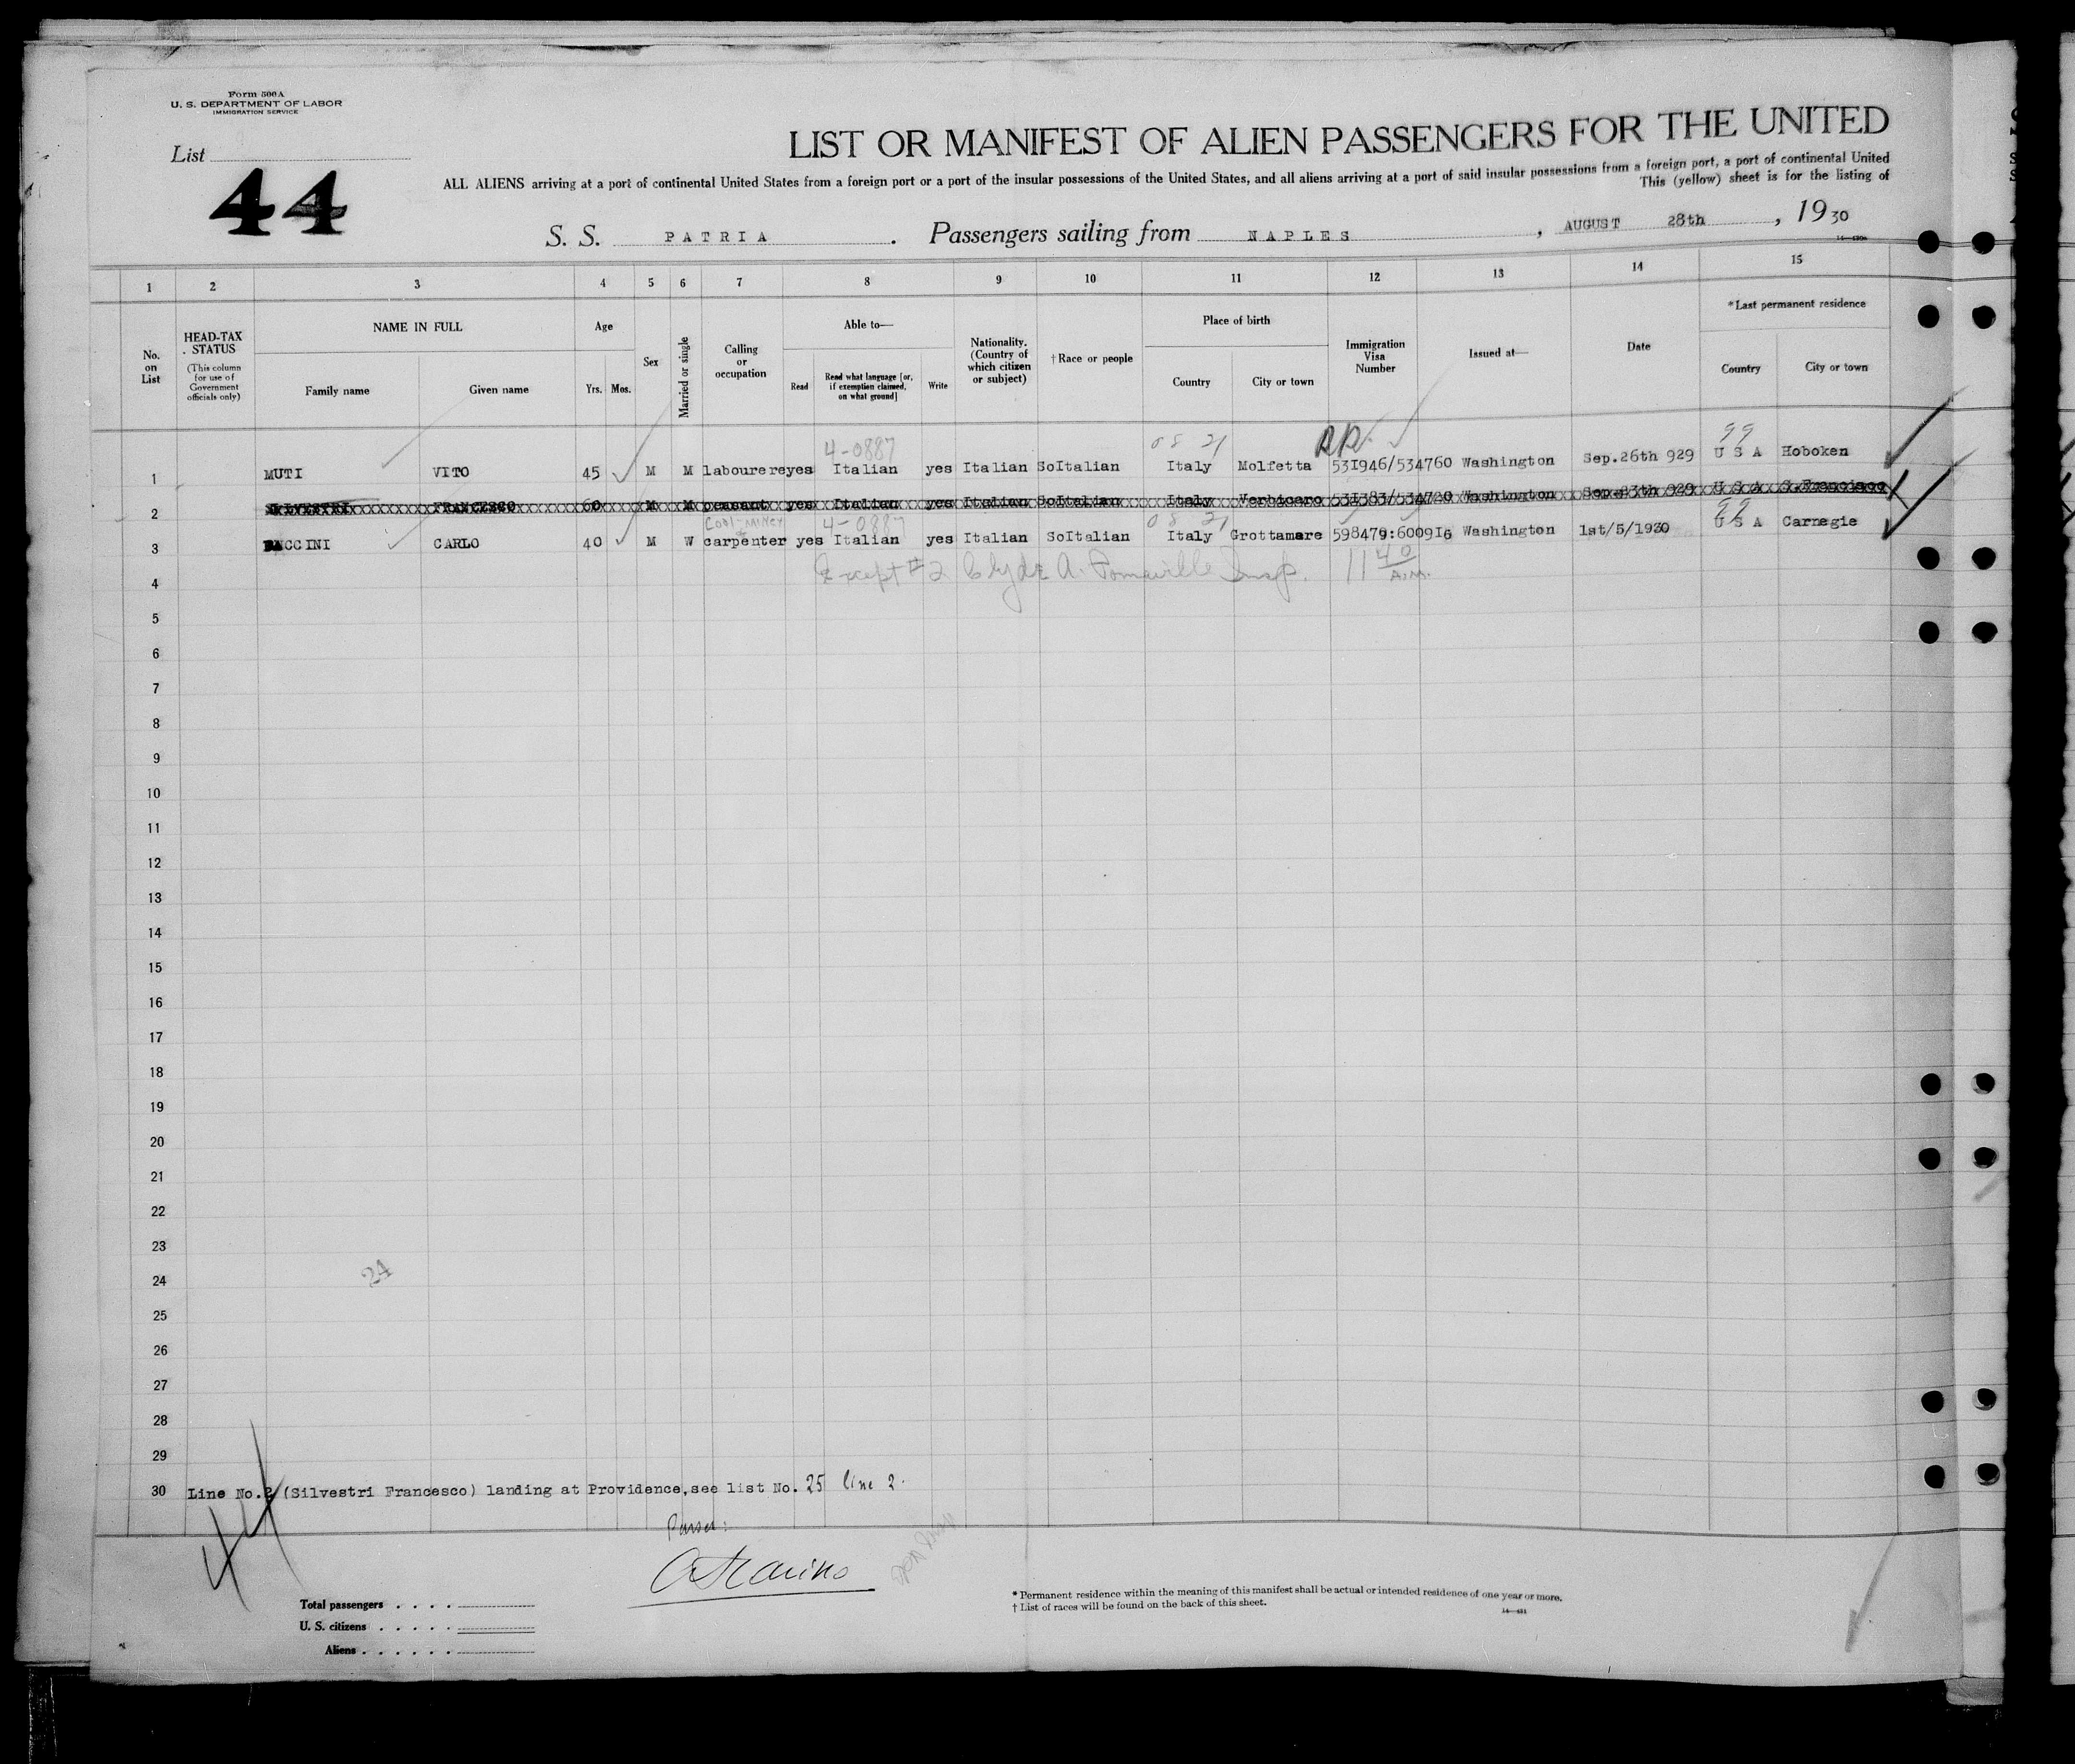 Form 500A
U. S. DEPARTMENT OF LABOR
IMMIGRATION SERVICE
List
44
LIST OR MANIFEST OF ALIEN PASSENGERS FOR THE UNITED
ALL ALIENS arriving at a port of continental United States from a foreign port or a port of the insular possessions of the United States, and all aliens arriving at a port of said insular possessions from a foreign port, a port of continental United
This (yellow) sheet is for the listing of
S. S. PATRIA . Passengers sailing from NAPLES , AUGUST 28th , 1930
1 2 3 4 5 6 7 8 9 10 11 12 13 14 15
No. on List
HEAD-TAX STATUS
(This column for use of Government officials only)
NAME IN FULL
Family name Given name
Age
Yrs. Mos.
Sex
Married or single
Calling or occupation
Able to—
Read Read what language [or, if exemption claimed, on what ground] Write
Nationality. (Country of which citizen or subject)
†Race or people
Place of birth
Country City or town
Immigration Visa Number
Issued at—
Date
*Last permanent residence
Country City or town
4-0887 08 21 99
1 MUTI VITO 45 M M labourere yes Italian yes Italian SoItalian Italy Molfetta 531946/534760 Washington Sep.26th 929 U S A Hoboken
2 SILVESTRI FRANCESCO 60 M M peasant yes Italian yes Italian SoItalian Italy Verbicaro 531383/534720 Washington Sep.23th 929 U S A S.Francisco
Coal-miner 4-0887 08 21 99
3 CCINI CARLO 40 M W carpenter yes Italian yes Italian SoItalian Italy Grottamare 598479:600916 Washington 1st/5/1930 U S A Carnegie
4 Except #2 Clyde A. Insp. 11 40 A.M.
5
6
7
8
9
10
11
12
13
14
15
16
17
18
19
20
21
22
23
24
24
25
26
27
28
29
30 Line No.2 (Silvestri Francesco) landing at Providence,see list No. 25 line 2.
44
Purser:
Total passengers
U. S. citizens
Aliens
* Permanent residence within the meaning of this manifest shall be actual or intended residence of one year or more.
† List of races will be found on the back of this sheet.